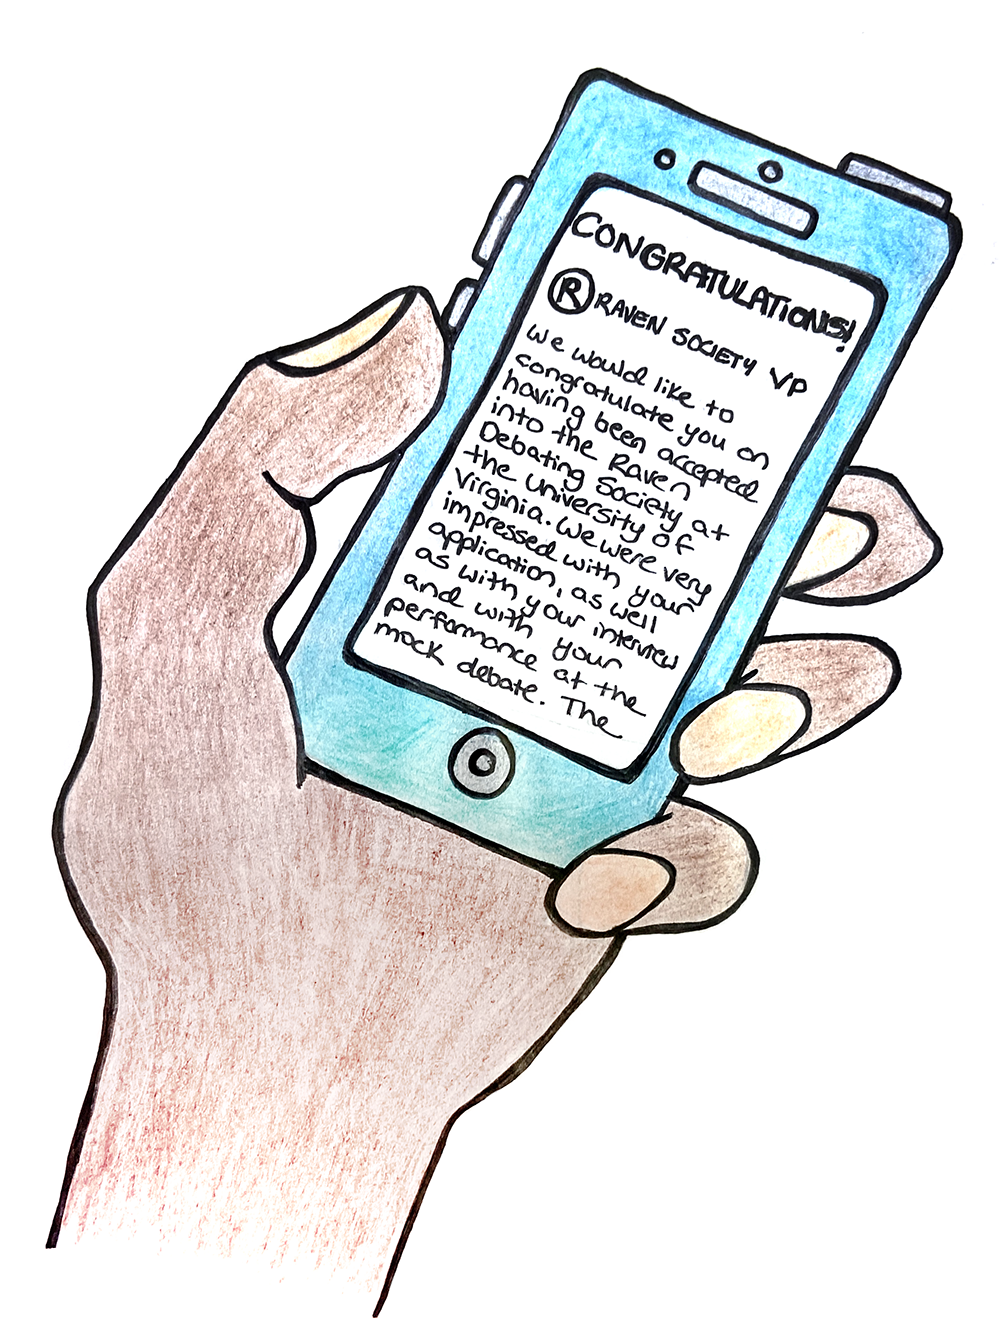 CONGRATULATIONS!
R RAVEN SOCIETY VP
We would like to
congratulate you on
having been accepted
into the Raven
Debating Society at
the University of
Virginia. We were very
impressed with your
application, as well
as with your interview
and with your
performance at the
mock debate. The